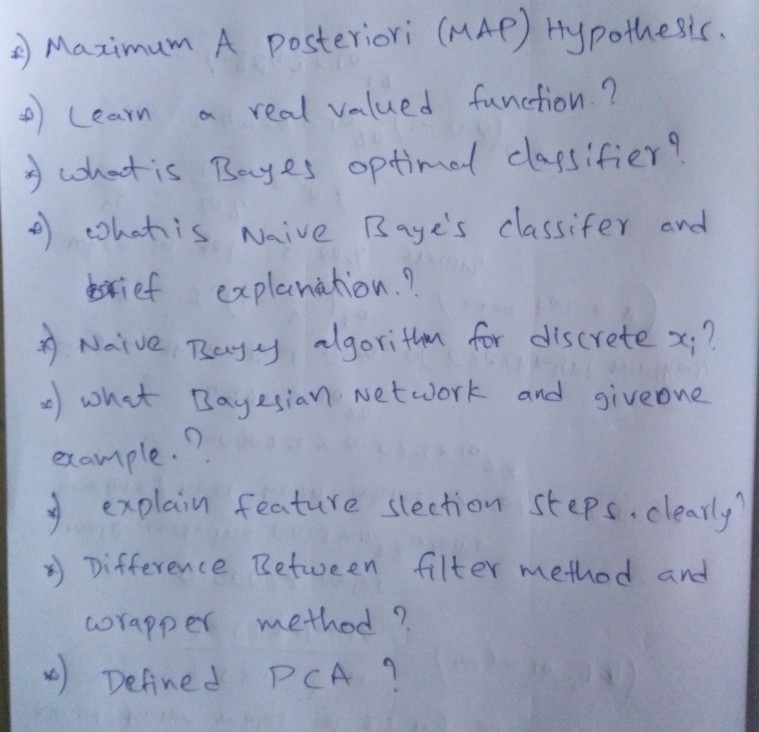 *) Maximum A posteriori (MAP) Hypothesis.
*) Learn a real valued function.?
*) what is Bayes optimal classifier?
*) what is Naive Baye's classifer and
brief explanation.?
*) Naive Bayes algorithm for discrete xi?
*) what Bayesian Network and give one
example.?
*) explain feature slection steps. clearly?
*) Difference Between filter method and
wrapper method?
*) Defined PCA ?